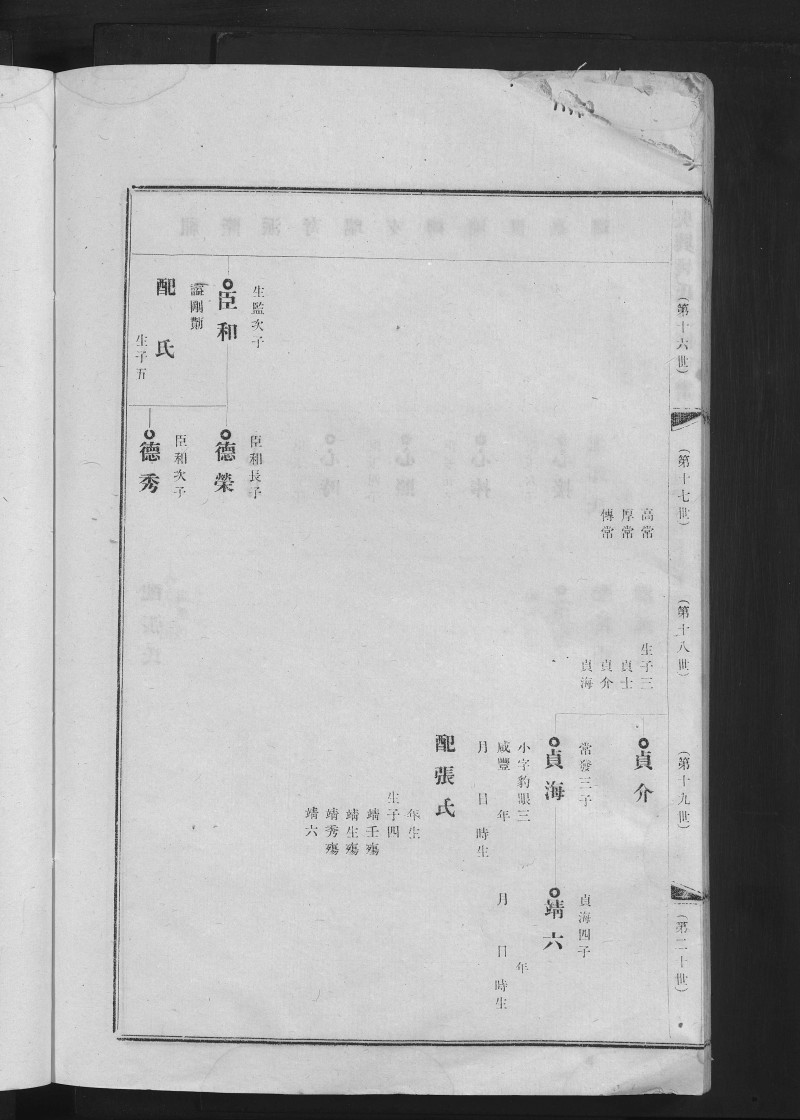 (第十六世)
(第十七世)
(第十八世)
(第十九世)
(第二十世)
高常
厚常
傳常
生子三
貞士
貞介
貞海
貞介
常發三子
貞海
小字豹眼三
咸豐　年
月　日時生
配張氏
年生
生子四
靖壬殤
靖生殤
靖秀殤
靖六
貞海四子
靖六
年
月　日時生
生監次子
臣和
諡剛
配　氏
生子五
臣和長子
德榮
臣和次子
德秀